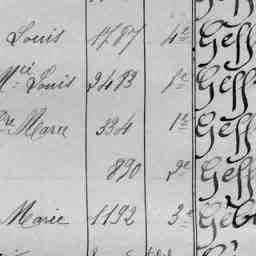 Louis 1787 4e Geff
Mié Louis 2493 1e Geff
Marie 334 1e Geff
890 2e Geff
Marie 1192 3e